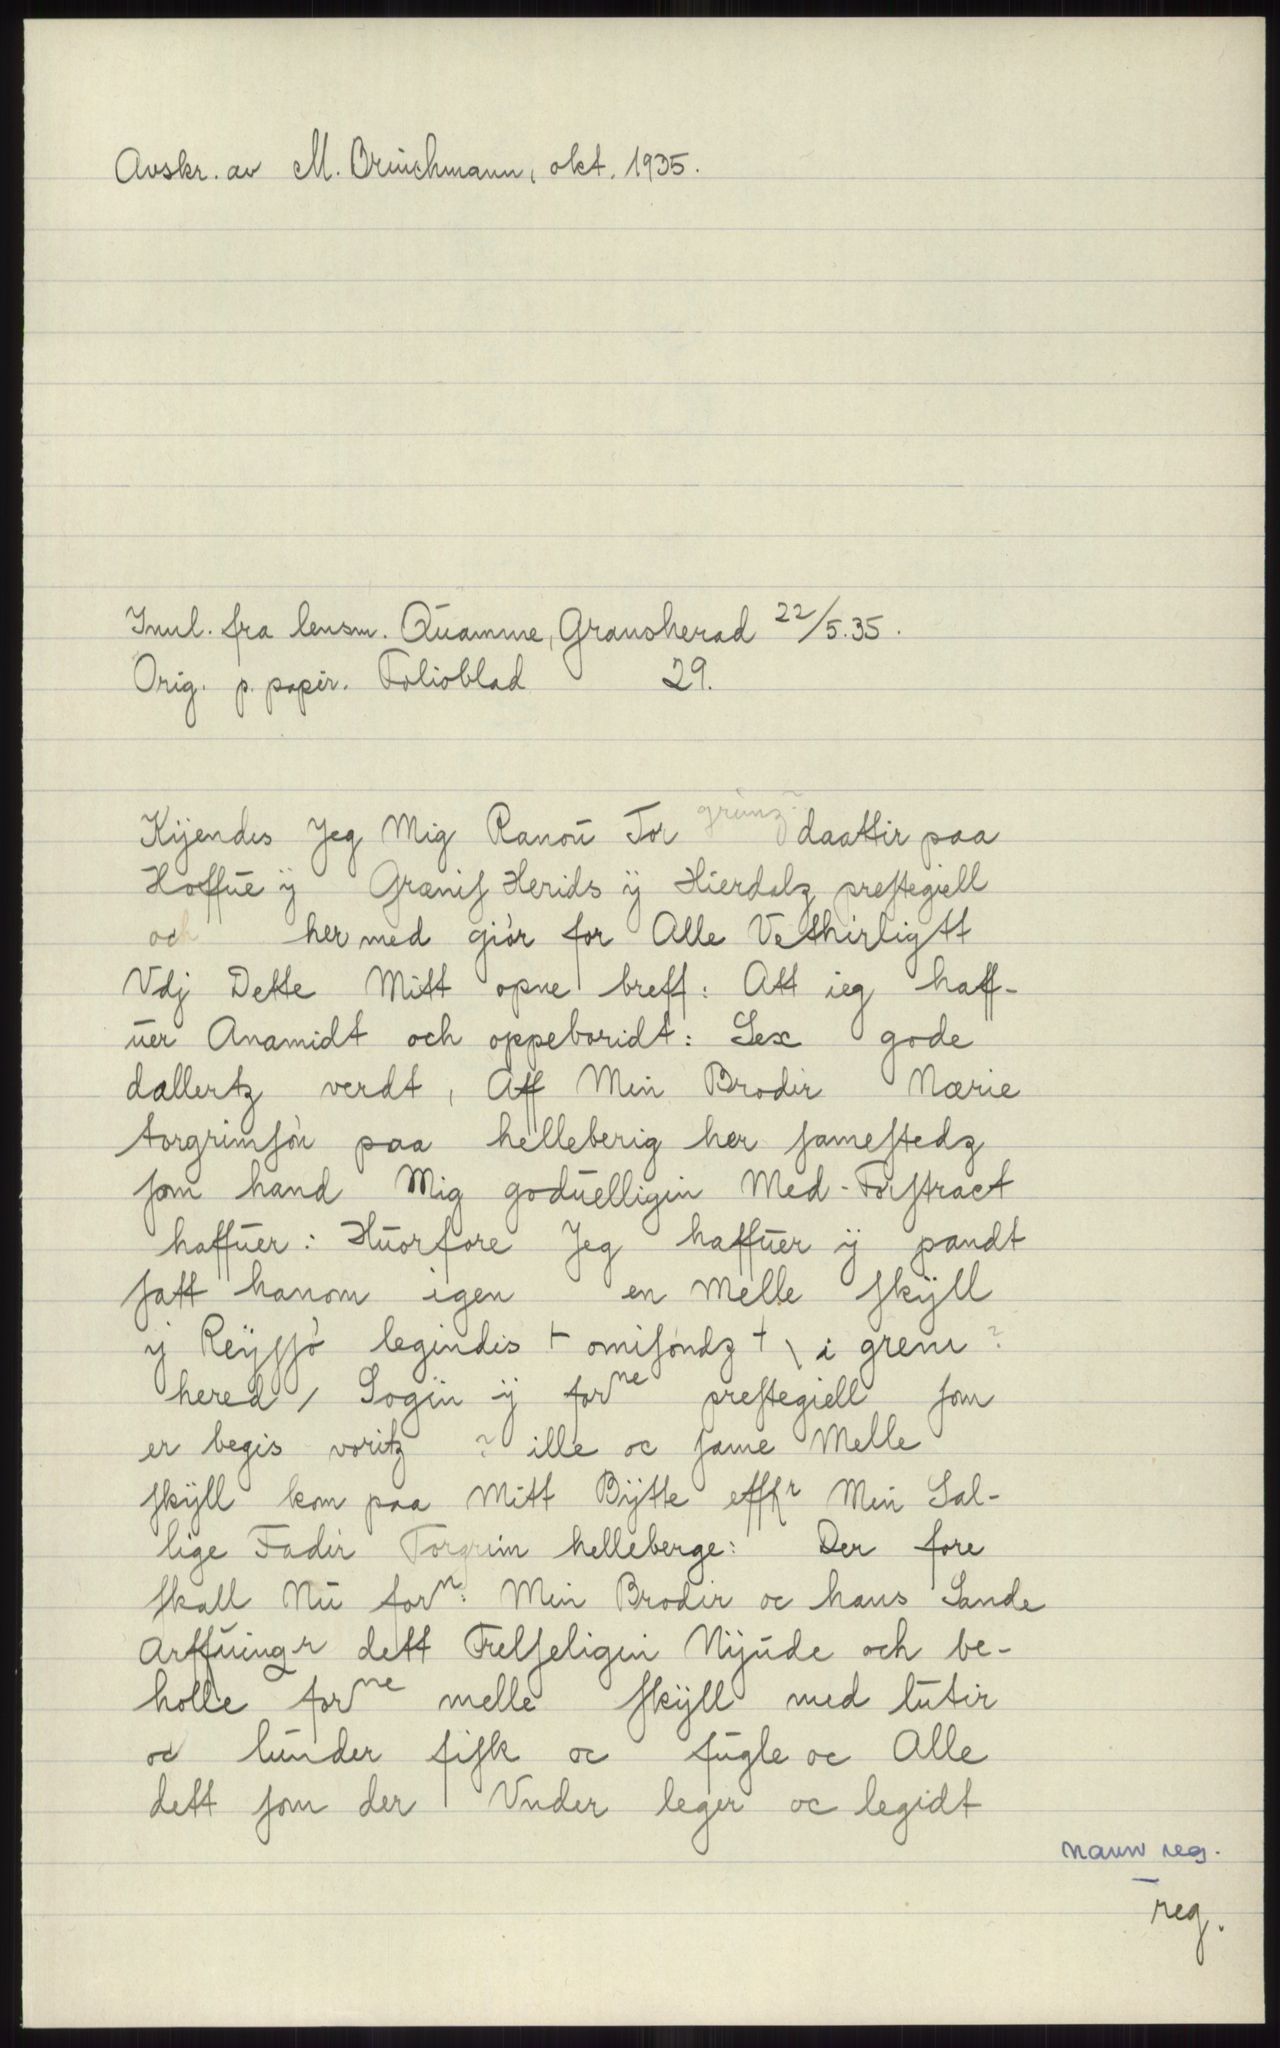 Avskr. av M. Brinchmann, okt. 1935.
Innl. fra lensm. Quamme, Gransherad 22/5.35.
Orig. p. papir. Folioblad 29.
Kijendes Jeg Mig Ranou Tor grimz ~ daattir paa
Hoffue ÿ Grænis Herids ÿ Hierdalz prestegiell
och her med giör for Alle Vethirligtt
Vdj Dette Mitt opne breff: Att ieg haff-
uer Anamidt och oppeboridt: Sex gode
dallertz verdt, Aff Min Brodir Nærie
torgrimsön paa helleberig her samestedz
som hand Mig goduelligin Med-Forstract
haffuer: Huorfore Jeg haffuer ÿ pandt
satt hanom igen en Melle skÿll
ÿ Reÿssö legindis + omisöndz + \ i grene ?
hered / Sogin ÿ forne prestegiell som
er begis voritz ? ille oc same Melle
skÿll kom paa Mitt Bÿtte efftr Min Sal-
lige Fadir Torgrim helleberge: Der fore
skall Nu forn: Min Brodir oc hans Sande
Arffuingr dett Frelseligin Nÿude och be-
holle forne melle skÿll med lutir
oc lunder fisk oc fugle oc Alle
dett som der Vnder leger oc legidt
navn reg.
reg.